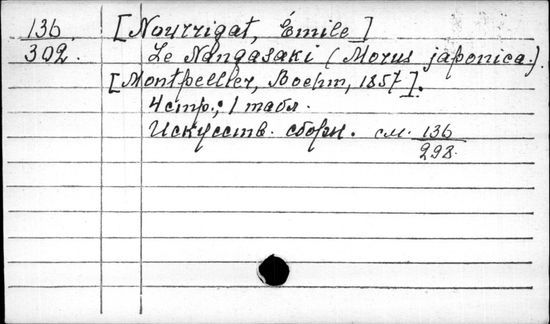 136. [Nourrigat, Émile]
302. Le Nangasaki (Morus japonica.).
[Montpellier, Boehm, 1857].
4 стр.; 1 табл.
Искусств. сборн. см. 136
298.